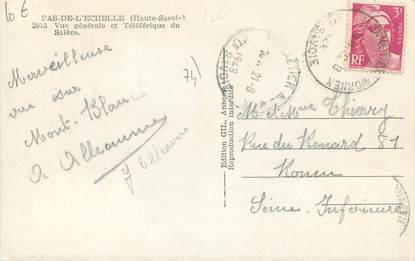 10€
PAS-DE-L'ECHELLE (Haute-Savoie)
2915 Vue générale et Téléférique du
Salève.
74)
Merveilleuse
vue sur
Mont-Blanc
Edition GIL, Annemasse
Reproduction interdite
3F
RF
HTE SAVOIE
1948
21-8
M. et Mme Thierry
Rue du Renard 81
Rouen
Seine Inférieure